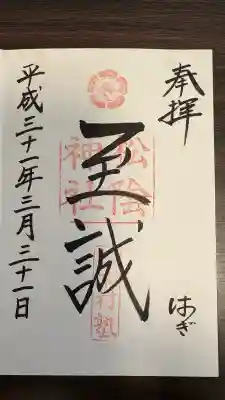 奉拝
はぎ
至誠
松陰
神社
村塾
平成三十一年三月三十一日